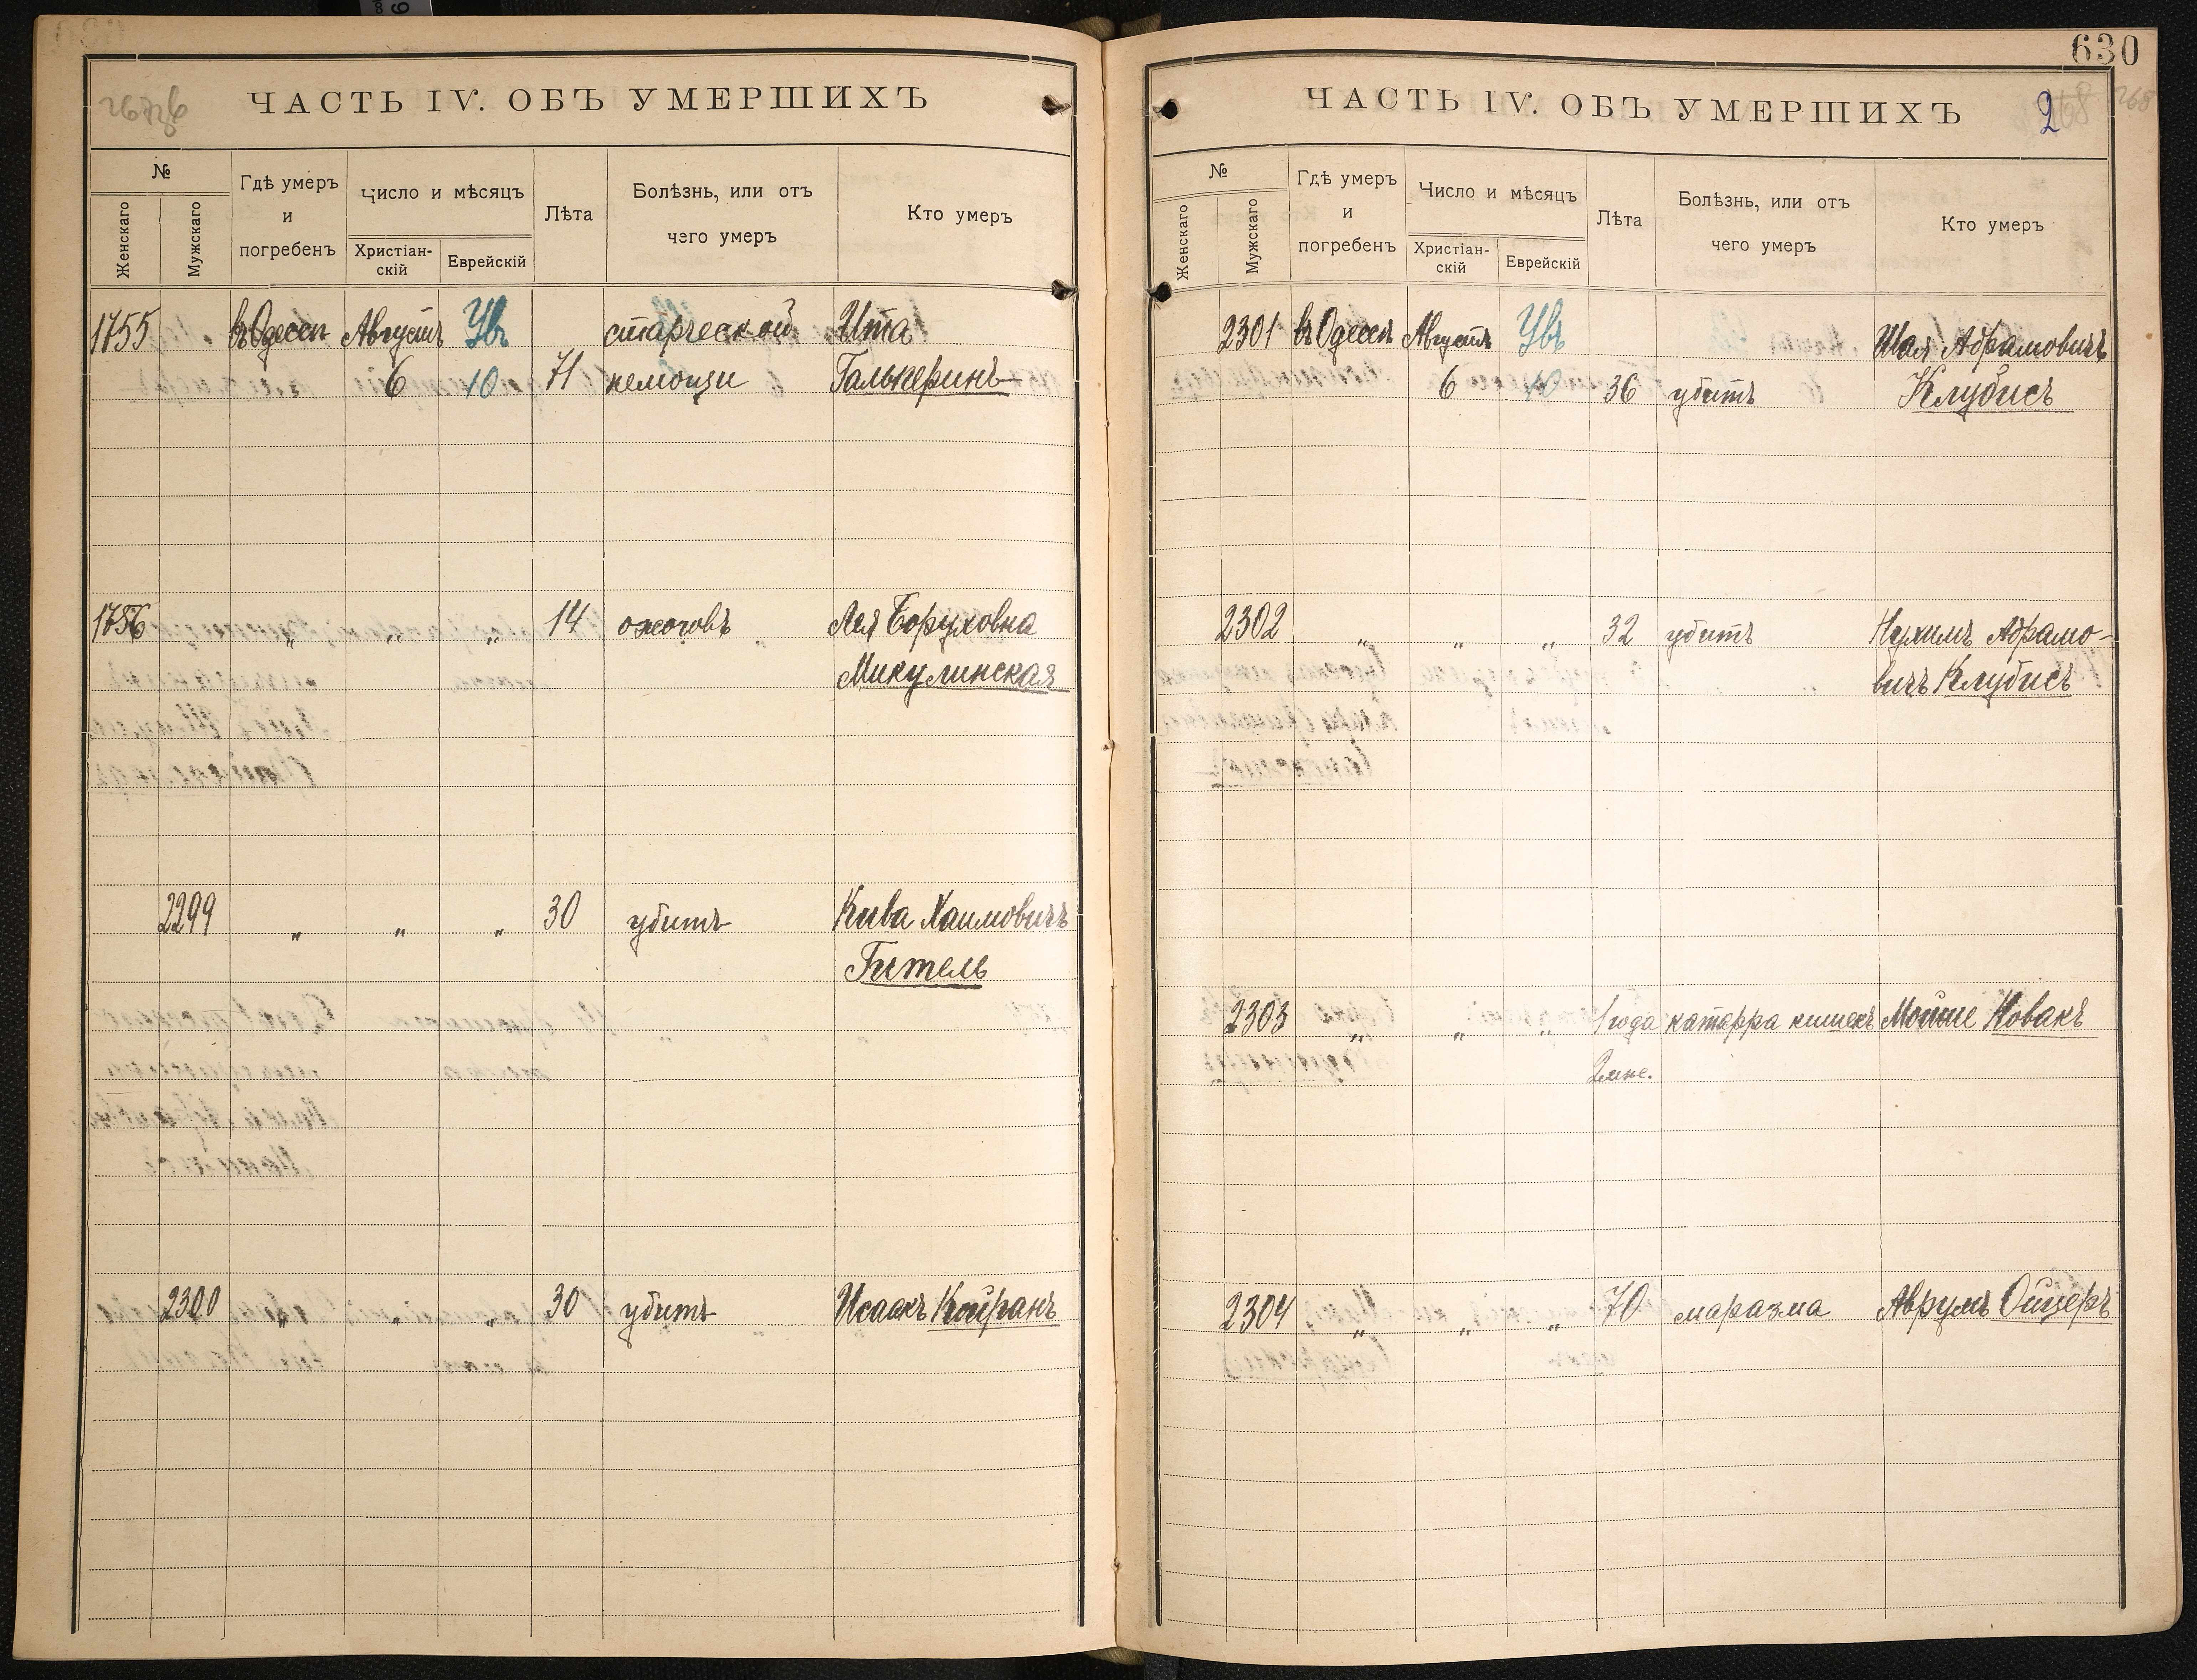 630
ЧАСТЬ IV. ОБЪ УМЕРШИХЪ
№
Женскаго
Мужскаго
Гдѣ умеръ
и
погребенъ
Число и мѣсяцъ
Христіан-
скій
Еврейскій
Лѣта
Болѣзнь, или отъ
чего умеръ
Кто умеръ
1755 въ Одессѣ Августъ Увъ старческой Ита
6 10 71 немощи Гальперинъ
1756 „ „ „ 14 ожоговъ Лея Боруховна
Микулинская
2299 „ „ „ 30 убитъ Кива Хаимовичъ
Гитель
2300 „ „ „ 30 убитъ Исаакъ Койранъ
ЧАСТЬ IV. ОБЪ УМЕРШИХЪ
2 268
№
Женскаго
Мужскаго
Гдѣ умеръ
и
погребенъ
Число и мѣсяцъ
Христіан-
скій
Еврейскій
Лѣта
Болѣзнь, или отъ
чего умеръ
Кто умеръ
2301 въ Одессѣ Августъ Увъ Шая Абрамовичъ
6 10 36 убитъ Клубисъ
2302 „ „ „ 32 убитъ Нухимъ Абрамо-
вичъ Клубисъ
2303 „ „ „ 1 года катарра кишекъ Мойше Новакъ
2 мнс.
2304 „ „ „ 70 маразма Аврумъ Ойцеръ